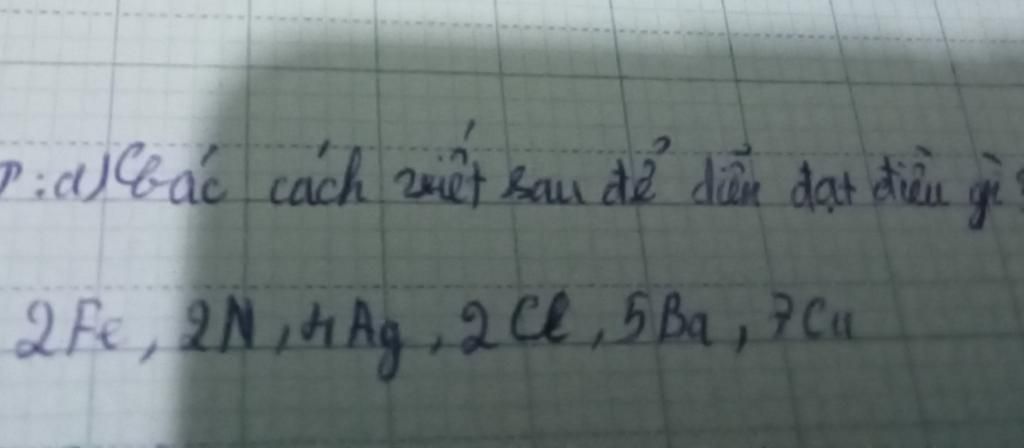 : a) Các cách viết sau để diễn đạt điều gì?
2Fe, 2N, 4Ag, 2Cl, 5Ba, 7Cu